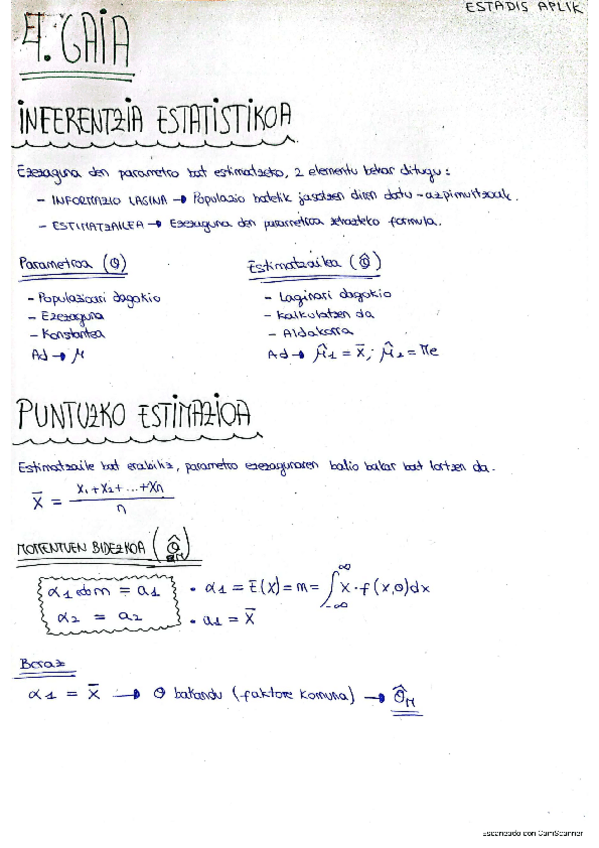 ESTADIS APLIK
4. GAIA
INFERENTZIA ESTATISTIKOA
Ezezaguna den parametro bat estimatzeko, 2 elementu behar ditugu:
- INFORMAZIO LAGINA → Populazio batetik jasotzen diren datu-azpimultzoak.
- ESTIMATZAILEA → Ezezaguna den parametroa zehazteko formula.
Parametroa (θ)
- Populazioari dagokio
- Ezezaguna
- Konstantea
Ad → μ
Estimatzailea (θ̂)
- Laginari dagokio
- Kalkulatzen da
- Aldakorra
Ad → μ̂1 = x̄; μ̂2 = Me
PUNTUZKO ESTIMAZIOA
Estimatzaile bat erabiliz, parametro ezezagunaren balio bakar bat lortzen da.
x̄ = (x1+x2+...+xn) / n
MOMENTUEN BIDEZKOA (θ̂M)
α1 edo m = a1
α2 = a2
• α1 = E(x) = m = ∫_{-∞}^{∞} x · f(x,θ)dx
• a1 = x̄
Beraz
α1 = x̄ → θ bakandu (faktore komuna) → θ̂M
Escaneado con CamScanner